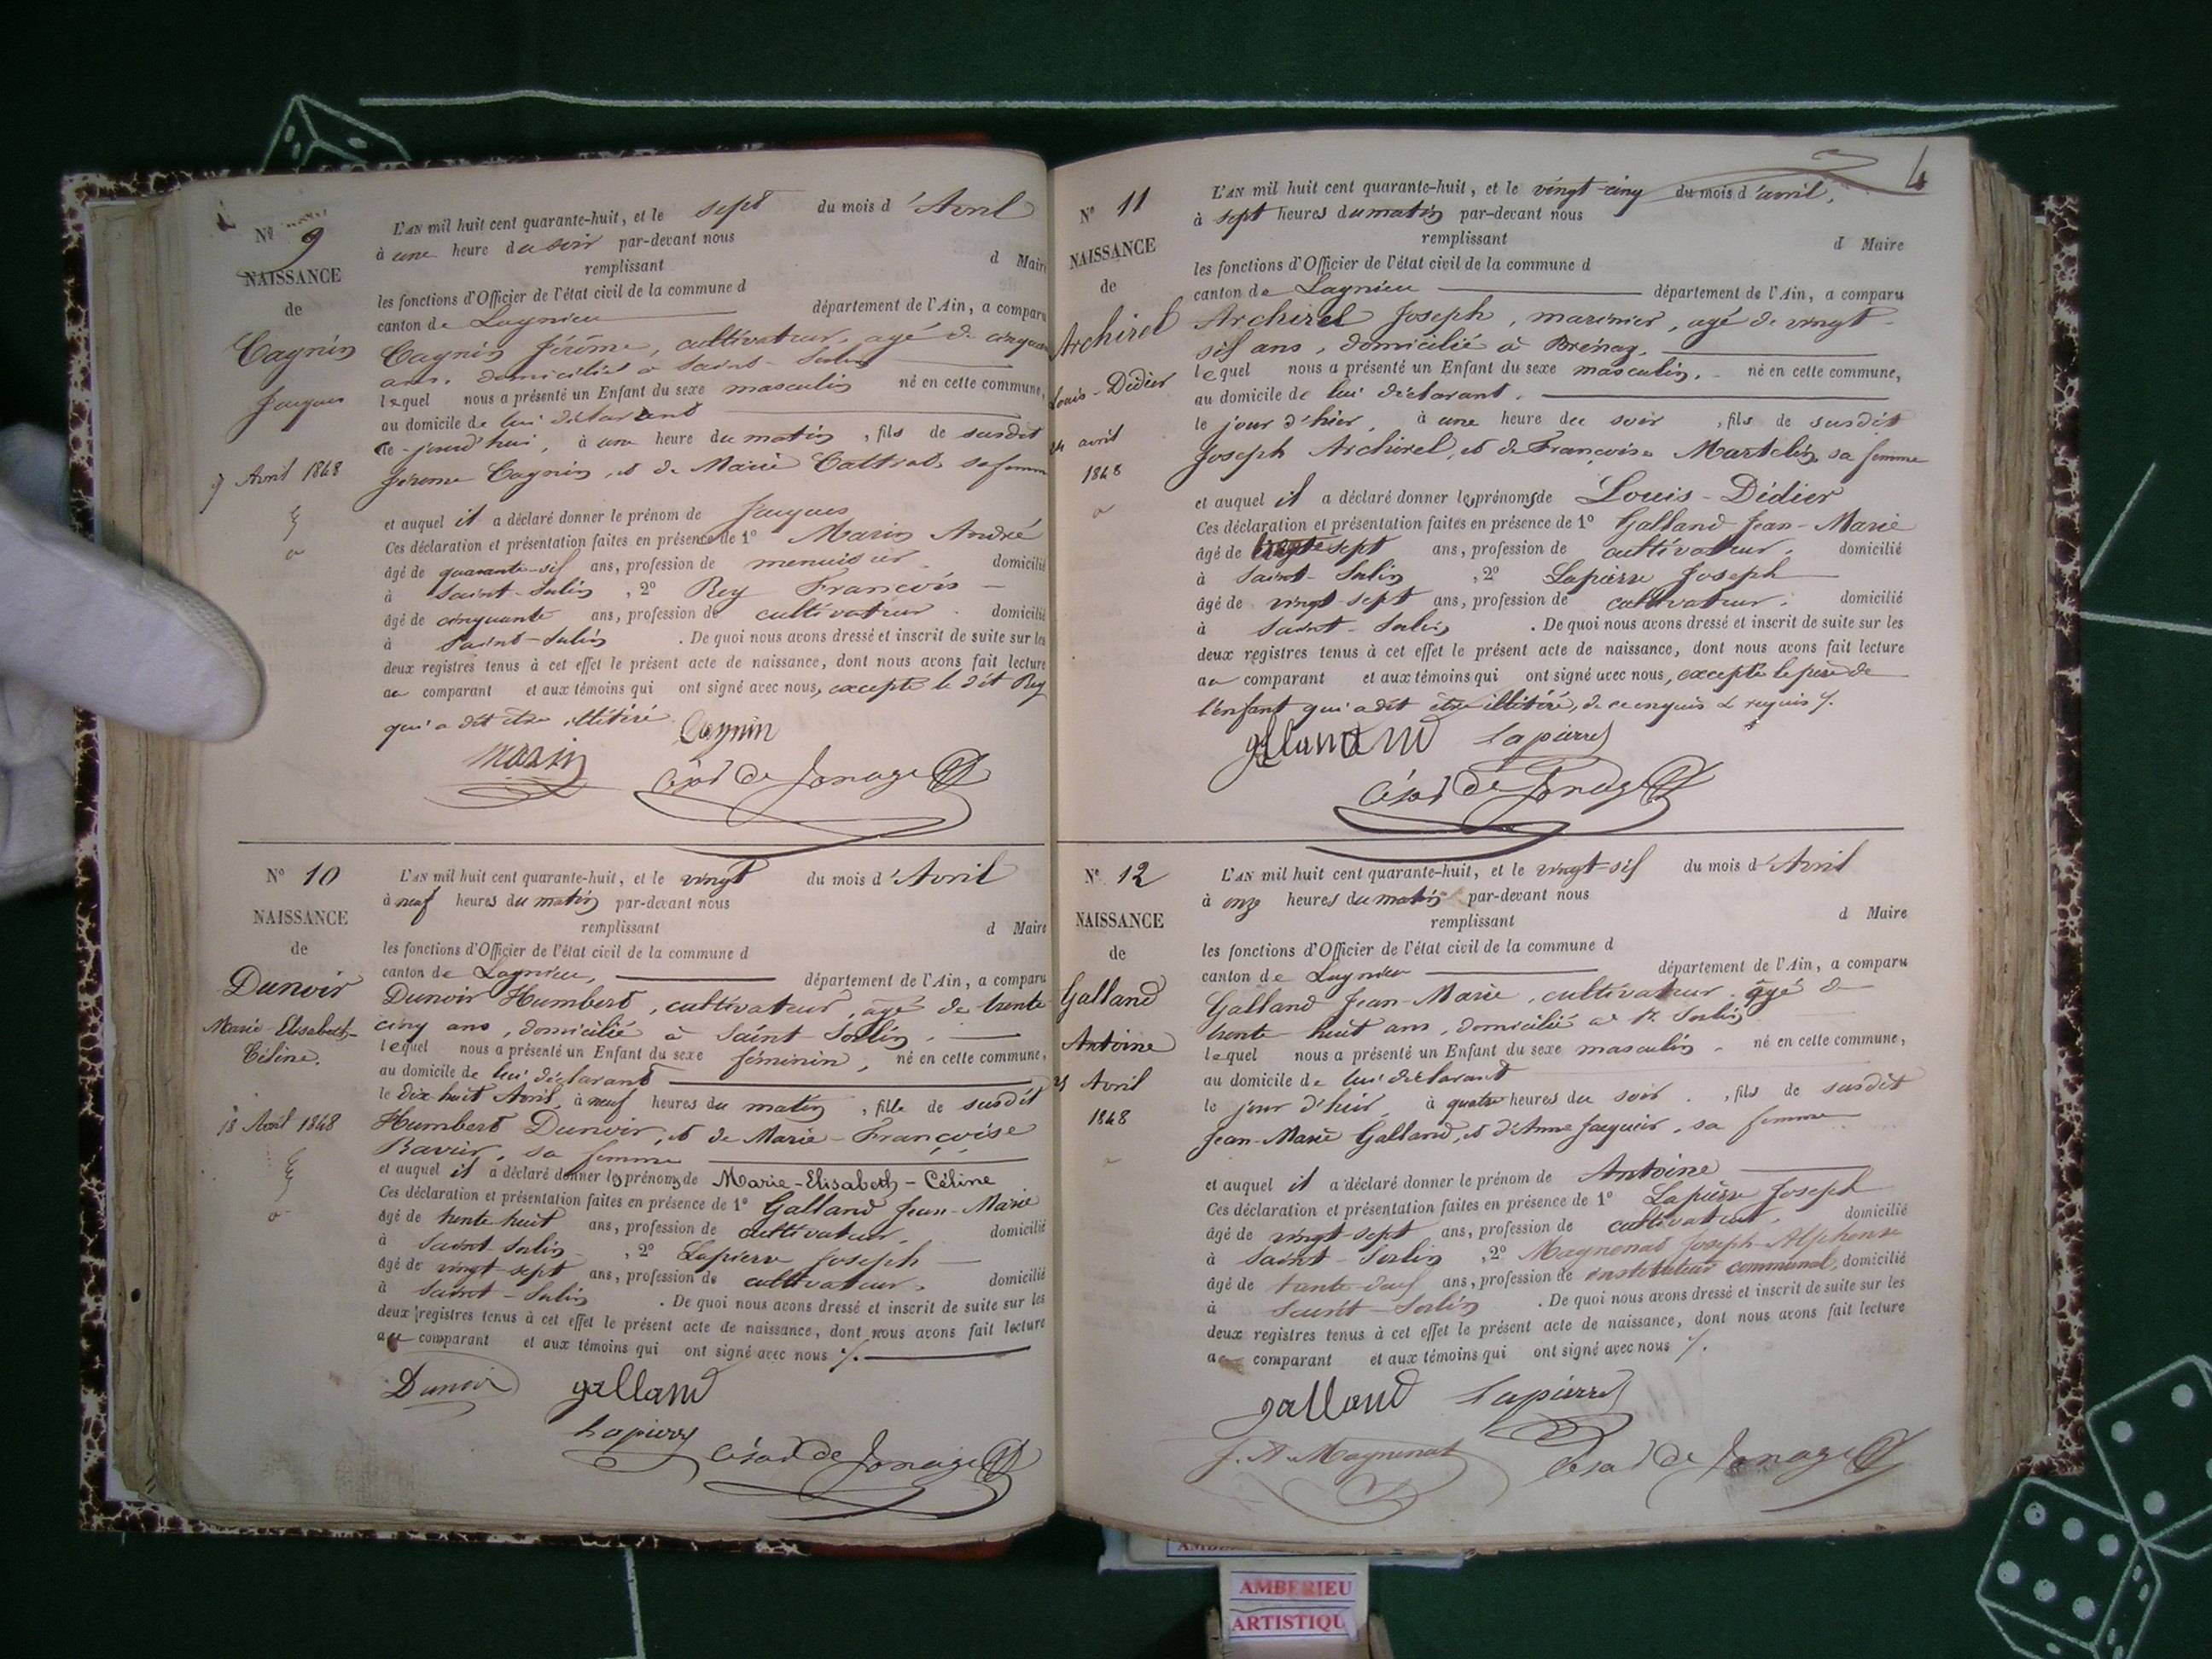 Nº 9
NAISSANCE
de
Cagnin
Jacques
7 Avril 1848
L'AN mil huit cent quarante-huit, et le sept du mois d'Avril
à une heure du soir par-devant nous
remplissant d Maire
les fonctions d'Officier de l'état civil de la commune d
canton de Lagnieu département de l'Ain, a comparu
Cagnin Jérôme, cultivateur, agé de cinquante
ans, domicilié à Saint-Sorlin
lequel nous a présenté un Enfant du sexe masculin né en cette commune,
au domicile de lui déclarant
ce jourd'hui, à une heure du matin, fils de susdit
Jérome Cagnin, et de Marie sa femme
et auquel il a déclaré donner le prénom de Jacques
Ces déclaration et présentation faites en présence de 1º Marin André
âgé de quarante-six ans, profession de menuisier domicilié
à Saint-Sorlin, 2º Rey François
âgé de cinquante ans, profession de cultivateur domicilié
à Saint-Sorlin. De quoi nous avons dressé et inscrit de suite sur les
deux registres tenus à cet effet le présent acte de naissance, dont nous avons fait lecture
au comparant et aux témoins qui ont signé avec nous, excepté le dit Rey
qui a dit être illétéré
Cagnin
Marin
César de Jonage
Nº 10
NAISSANCE
de
Dunoir
Marie-Elisabeth-
Céline.
18 Avril 1848
L'AN mil huit cent quarante-huit, et le vingt du mois d'Avril
à neuf heures du matin par-devant nous
remplissant d Maire
les fonctions d'Officier de l'état civil de la commune d
canton de Lagnieu, département de l'Ain, a comparu
Dunoir Humbert, cultivateur, agé de trente
cinq ans, domicilié à Saint-Sorlin,
lequel nous a présenté un Enfant du sexe féminin, né en cette commune,
au domicile de lui déclarant
le dix-huit Avril, à neuf heures du matin, fille de susdit
Humbert Dunoir, et de Marie-Françoise
Ravier, sa femme
et auquel il a déclaré donner les prénoms de Marie-Elisabeth-Céline
Ces déclaration et présentation faites en présence de 1º Galland Jean-Marie
âgé de trente huit ans, profession de cultivateur, domicilié
à Saint-Sorlin, 2º Lapierre Joseph
âgé de vingt-sept ans, profession de cultivateur, domicilié
à Saint-Sorlin. De quoi nous avons dressé et inscrit de suite sur les
deux registres tenus à cet effet le présent acte de naissance, dont nous avons fait lecture
au comparant et aux témoins qui ont signé avec nous
Dunoir
galland
Lapierre
César de Jonage
4
Nº 11
NAISSANCE
de
Archirel
Louis-Didier
24 avril
1848
L'AN mil huit cent quarante-huit, et le vingt-cinq du mois d'avril,
à sept heures du matin par-devant nous
remplissant d Maire
les fonctions d'Officier de l'état civil de la commune d
canton de Lagnieu département de l'Ain, a comparu
Archirel Joseph, marinier, agé de vingt-
six ans, domicilié à Brénaz,
lequel nous a présenté un Enfant du sexe masculin, né en cette commune,
au domicile de lui déclarant,
le jour d'hier, à une heure du soir, fils de susdit
Joseph Archirel, et de Françoise Martelin, sa femme
et auquel il a déclaré donner les prénoms de Louis-Didier
Ces déclaration et présentation faites en présence de 1º Galland Jean-Marie
âgé de sept ans, profession de cultivateur, domicilié
à Saint-Sorlin, 2º Lapierre Joseph
âgé de vingt-sept ans, profession de cultivateur, domicilié
à Saint-Sorlin. De quoi nous avons dressé et inscrit de suite sur les
deux registres tenus à cet effet le présent acte de naissance, dont nous avons fait lecture
au comparant et aux témoins qui ont signé avec nous, excepté le père de
l'enfant qui a dit être illétéré, de ce enquis & requis
galland Lapierre
César de Jonage
Nº 12
NAISSANCE
de
Galland
Antoine
25 Avril
1848
L'AN mil huit cent quarante-huit, et le vingt-six du mois d'Avril
à onze heures du matin par-devant nous
remplissant d Maire
les fonctions d'Officier de l'état civil de la commune d
canton de Lagnieu département de l'Ain, a comparu
Galland Jean-Marie, cultivateur, âgé de
trente-huit ans, domicilié à St. Sorlin
lequel nous a présenté un Enfant du sexe masculin, né en cette commune,
au domicile de lui déclarant
le jour d'hier, à quatre heures du soir, fils de susdit
Jean-Marie Galland, et d'Anne Jacquier, sa femme
et auquel il a déclaré donner le prénom de Antoine
Ces déclaration et présentation faites en présence de 1º Lapierre Joseph
âgé de vingt-sept ans, profession de cultivateur, domicilié
à Saint-Sorlin, 2º Magnenat Joseph-Alphonse
âgé de ans, profession de instituteur communal, domicilié
à Saint-Sorlin. De quoi nous avons dressé et inscrit de suite sur les
deux registres tenus à cet effet le présent acte de naissance, dont nous avons fait lecture
au comparant et aux témoins qui ont signé avec nous
galland Lapierre
J. A. Magnenat
César de Jonage
AMBERIEU
ARTISTIQU